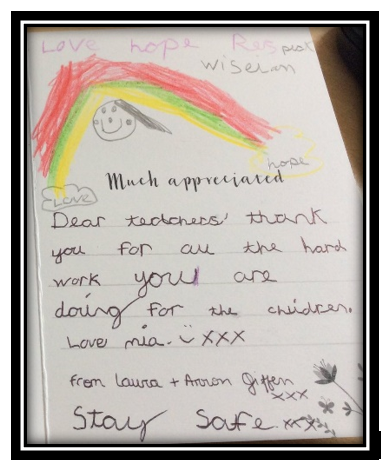 Love hope Respect
wiseian
hope
Much appreciated
Love
Dear teachers' thank
you for all the hard
work you are
doing for the children.
Love mia. XXX
from Laura + Arron Giffen
XXX
Stay Safe xxx